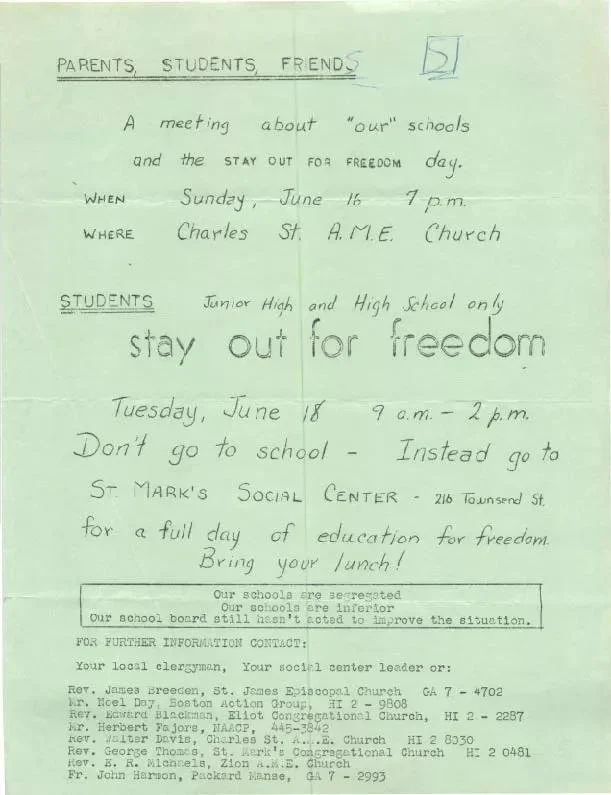 PARENTS, STUDENTS, FRIENDS
A meeting about "our" schools
and the STAY OUT FOR FREEDOM day.
WHEN Sunday, June 16 7 p.m.
WHERE Charles St. A.M.E. Church
STUDENTS Junior High and High School only
stay out for freedom
Tuesday, June 18 9 a.m. - 2 p.m.
Don't go to school - Instead go to
ST. MARK'S SOCIAL CENTER - 216 Townsend St.
for a full day of education for freedom.
Bring your lunch!
Our schools are segregated
Our schools are inferior
Our school board still hasn't acted to improve the situation.
FOR FURTHER INFORMATION CONTACT:
Your local clergyman, Your social center leader or:
Rev. James Breeden, St. James Episcopal Church GA 7 - 4702
Mr. Noel Day, Boston Action Group, HI 2 - 9808
Rev. Edward Blackman, Eliot Congregational Church, HI 2 - 2287
Mr. Herbert Fajors, NAACP, 445-3842
Rev. Walter Davis, Charles St. A.M.E. Church HI 2 8030
Rev. George Thomas, St. Mark's Congregational Church HI 2 0481
Rev. E. R. Michaels, Zion A.M.E. Church
Fr. John Harmon, Packard Manse, GA 7 - 2993